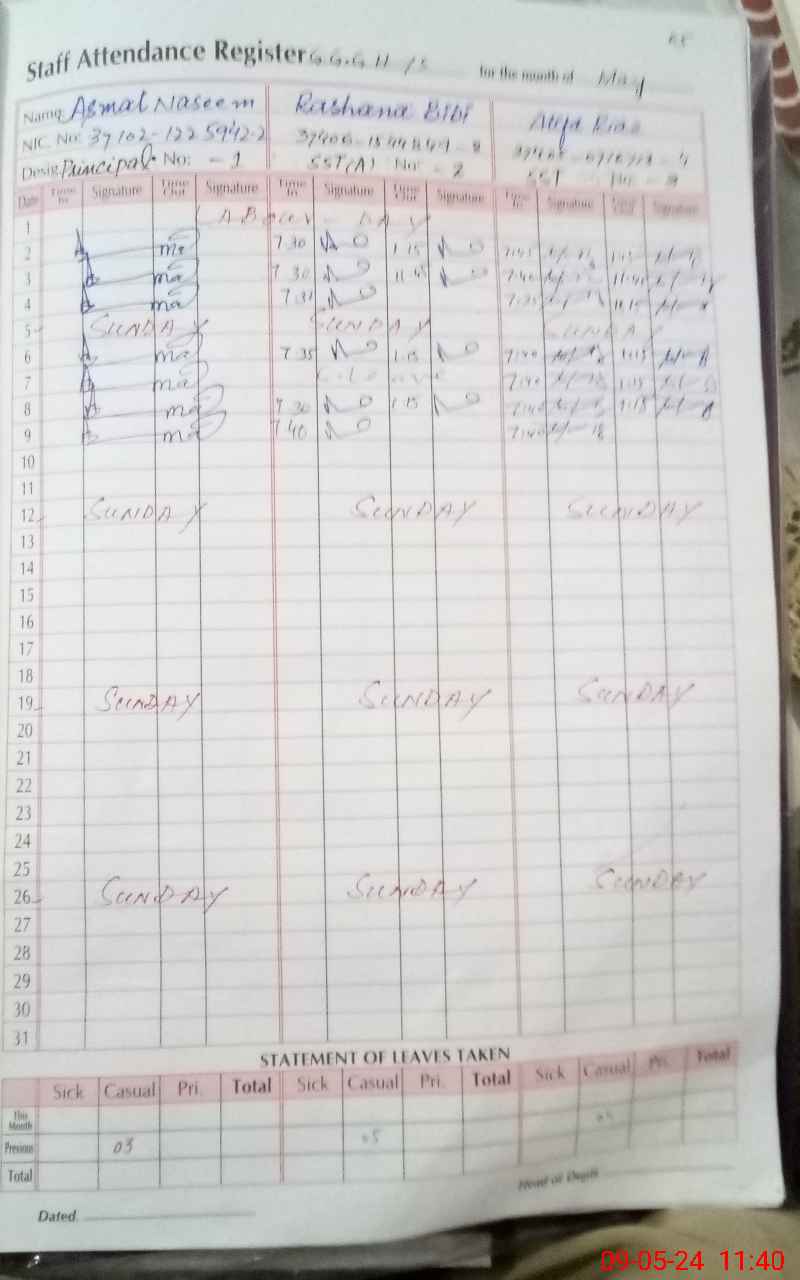 Staff Attendance Register G.G.G.H/S for the month of May
Name: Asmat Naseem Rashana BIBI
NIC. No: 37102-1225942-2
Desig. Principal No: - 1 SST(A) No: - 2 SST No - 3
Date Time In Signature Time Out Signature Time In Signature Time Out Signature Time In Signature Time Out Signature
1 LABOUR - DAY
2 7.30 1.15 7:45 1:15
3 7.30 11.45 7:40 11:40
4 7.31 7:35 11:15
5 SUNDAY SUNDAY SUNDAY
6 7.35 1.15 7:40 1:15
7 C. Leave 7:40 1:15
8 7.30 1.15 7:40 1:15
9 7.40 7:40
10
11
12 SUNDAY SUNDAY SUNDAY
13
14
15
16
17
18
19 SUNDAY SUNDAY SUNDAY
20
21
22
23
24
25
26 SUNDAY SUNDAY SUNDAY
27
28
29
30
31
STATEMENT OF LEAVES TAKEN
Sick Casual Pri. Total Sick Casual Pri. Total Sick Casual Pri. Total
This Month
Previous 03 05 05
Total
Head of Deptt
Dated
09-05-24 11:40